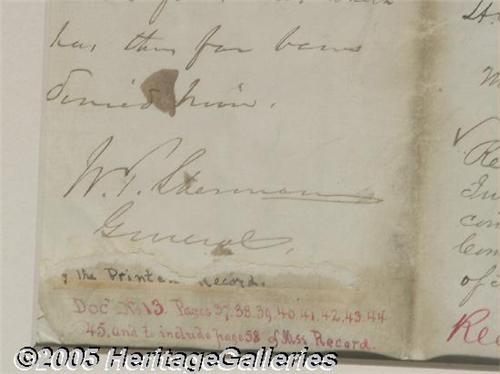 has thus far been
denied him.
W. T. Sherman
General.
g the Printed Record.
Doc' No 13. Pages 37, 38, 39, 40, 41, 42, 43, 44
45, and to include page 58 of Miss Record.
Re
con
of
Rec
©2005 HeritageGalleries